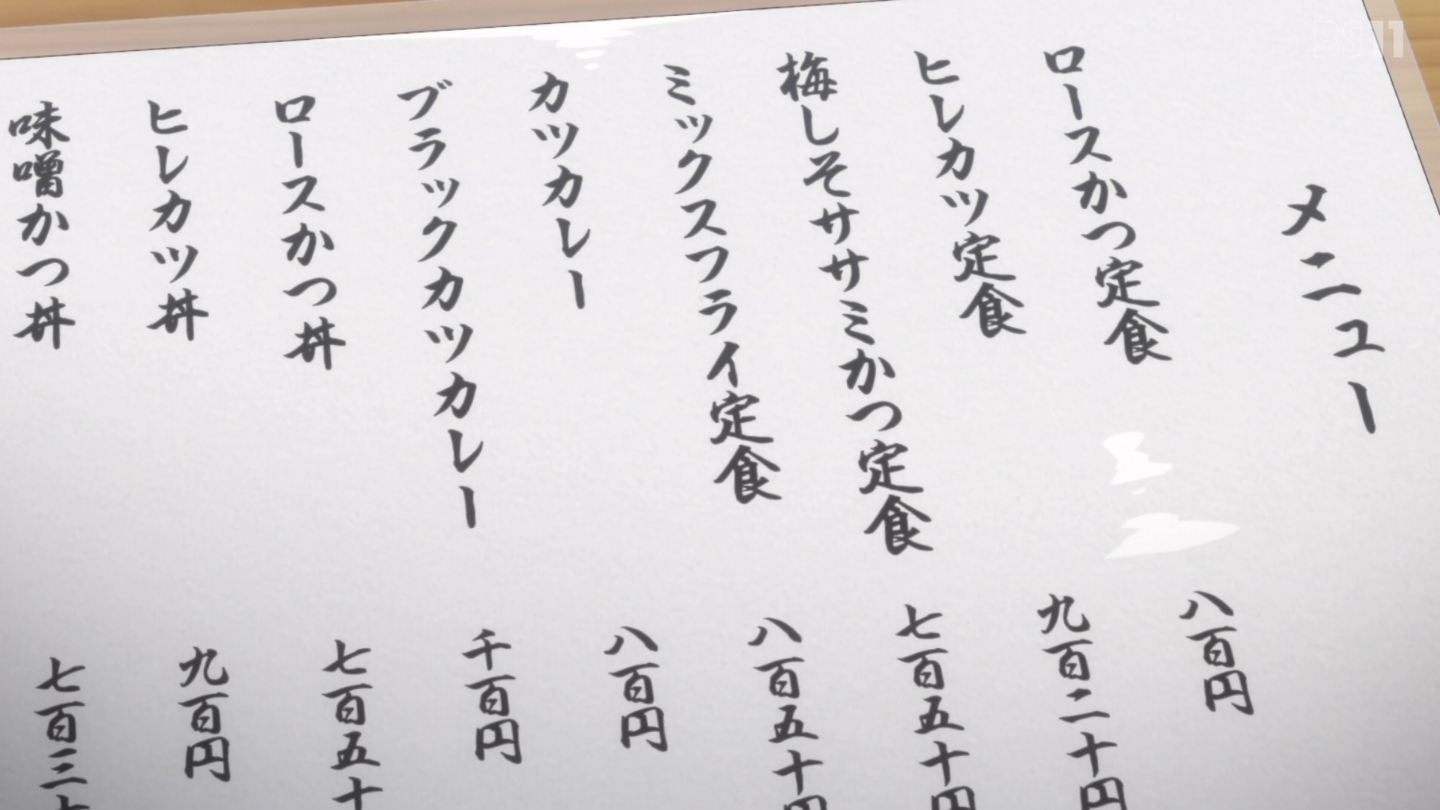 メニュー
ロースかつ定食 八百円
ヒレカツ定食 九百二十円
梅しそササミかつ定食 七百五十円
ミックスフライ定食 八百五十円
カツカレー 八百円
ブラックカツカレー 千百円
ロースかつ丼 七百五十
ヒレカツ丼 九百円
味噌かつ丼 七百三十
BS11